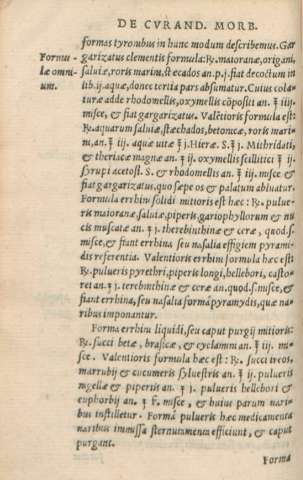 DE CVRAND. MORB.
formas tyronibus in hunc modum describemus. Gar
Formu-
læ omni-
um.
garizatus clementis formula: ℞. maioranæ, origani,
saluiæ, roris marini, stęcados an. p. j. fiat decoctum in
lib. ij. aquæ, donec tertia pars absumatur. Cuius cola-
turæ adde rhodomellis, oxymellis cõpositi an. ℥ iiij.
misce, & fiat gargarizatus. Valẽtioris formula est:
℞. aquarum saluiæ, stœchados, betonicæ, roris mari-
ni, an. ℥ iij. aquæ vitæ ℥ j. Hieræ. S. ʒ j. Mithridati,
& theriacæ magnæ an. ʒ ij. oxymellis scellitici ℥ ij.
syrupi acetosi. S. & rhodomellis an. ℥ iij. misce &
fiat gargarizatus, quo sæpe os & palatum abluatur.
Formula errhini solidi mitioris est hæc : ℞. pulue-
ris maioranæ saluiæ, piperis, gariophyllorum & nu
cis muscatæ an. ʒ j. therebinthinæ & ceræ, quod.s.
misce, & fiant errhina seu nasalia effigiem pyrami-
dis referentia. Valentioris errhini formula hæc est:
℞. pulueris pyrethri, piperis longi, hellebori, casto-
rei an. ʒ j. terebinthinæ & ceræ an. quod.s. misce, &
fiant errhina, seu nasalia formã pyramydis, quæ na-
ribus imponantur.
Forma errhini liquidi, seu caput purgij mitioris:
℞. succi betæ, brasicæ, & cyclamini an. ℥ iij. mi-
sce . Valentioris formula hæc est : ℞. succi ireos,
marrubij & cucumeris syluestris an. ℥ ij. pulueris
nigellæ & piperis an. ʒ j. pulueris hellebori &
euphorbij an. misce , & huius parum nari-
bus instilletur . Formã pulueris hæc medicamenta
naribus immissa sternutamenta efficiunt, & caput
purgant.
Forma